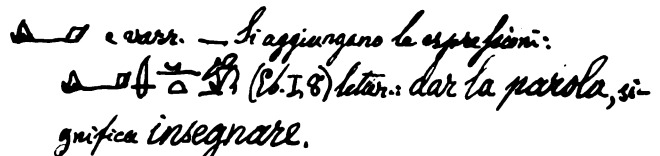 e varr. — Si aggiungano le espressioni:
(Eb. I, 8) letter.: dar la parola, si-
gnifica insegnare.